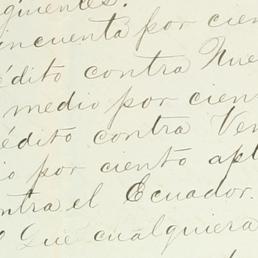 siguientes.
incuenta por cien
édito contra Nue
medio por cien
édito contra Ven
io por ciento apl
ntra el Ecuador.
Que cualquiera